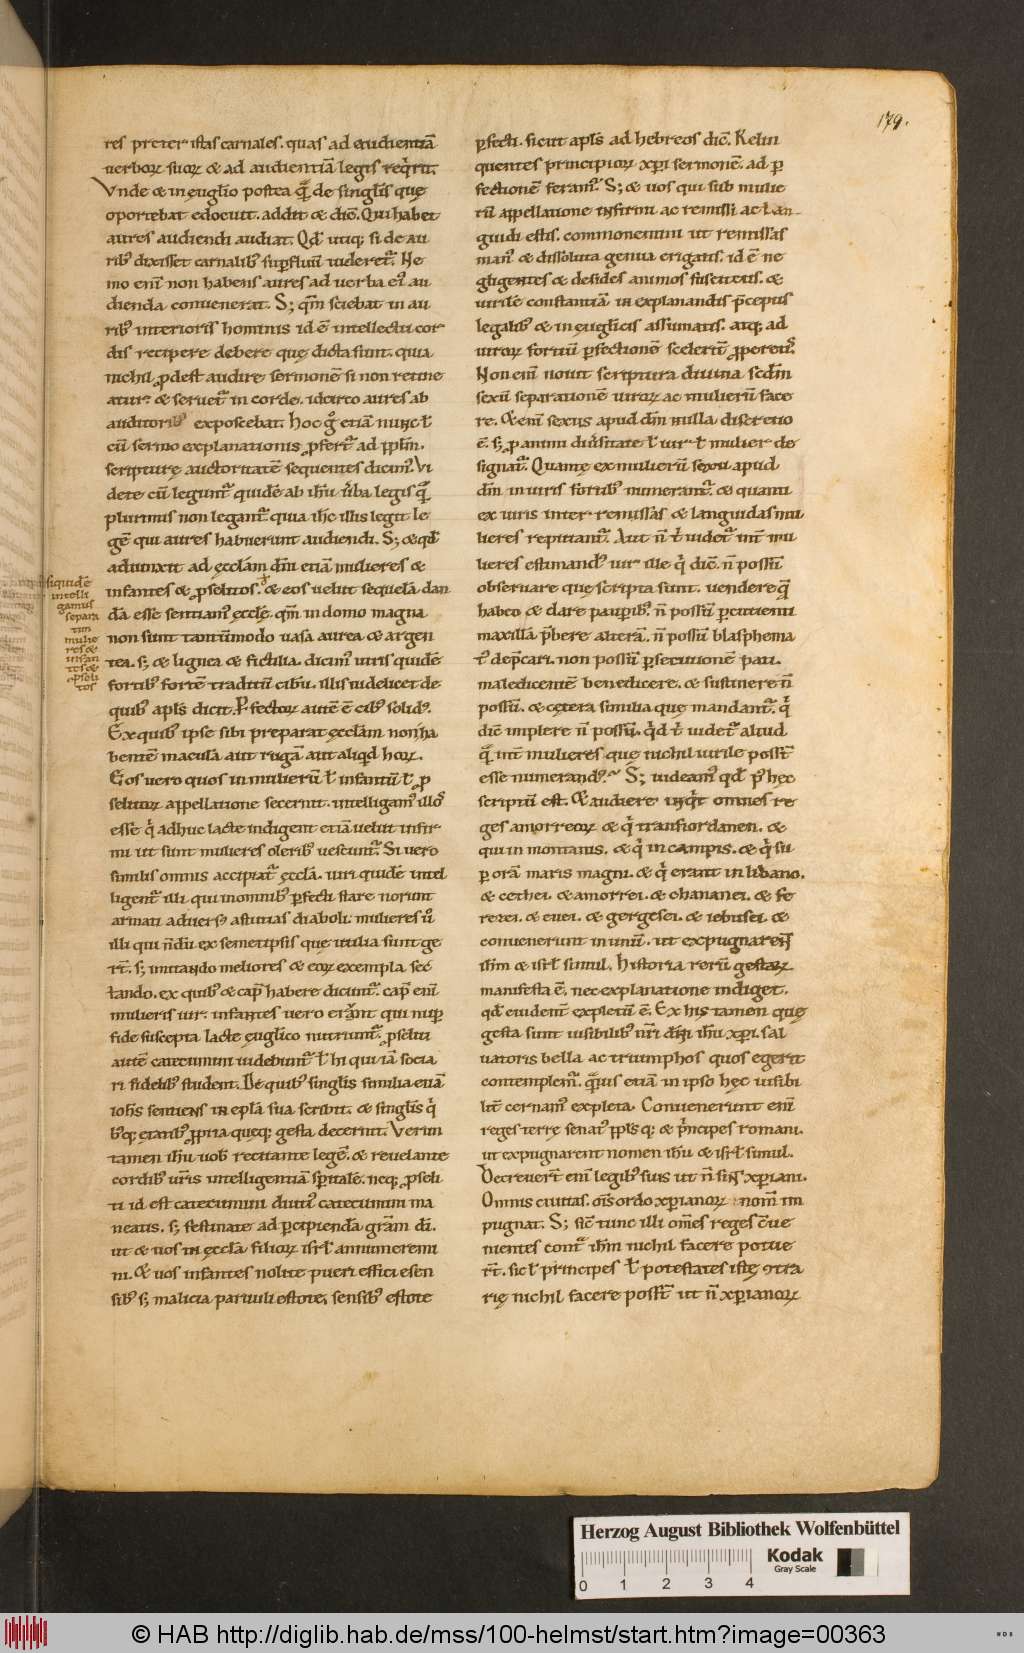 179.
res preter istas carnales. quas ad audientiā
uerboꝝ suoꝝ & ad audientiā legis req̇rit.
Vnde & in ęuglio postea q̄ de singlis quę
oportebat edocuit. addit & dic̄. Qui habet
aures audiendi audiat. Qd utiq; si de au
rib; dixisset carnalib; supfluū uideret̄. Ne
mo eni non habens aures ad uerba ei; au
dienda conuenerat. S; qm̄ sciebat in au
rib; interioris hominis id ē intellectu cor
dis recipere debere quę dicta sunt. quia
nichil ꝓdest audire sermonē si non retine
atur & seruet̄ in corde. idcirco aures ab
auditorib; exposcebat. Hoc g̊ etiā nunc ł
cū sermo explanationis ꝓfert̄ ad pplm̄.
scripturę auctoritatē sequentes dicim;. Vi
dete cū legunt̄ quidē ab ihu ūba legis q̄
plurimis non legant̄ quia ihc illis legit le
gē qui aures habuerunt audiendi. S; & qd
adiunxit ad ęcclam dm̄ etiā mulieres &
infantes & ꝓselitos. & eos uelut sequelā dan
dā esse sentiam; ęcclę. qm̄ in domo magna
non sunt tantūmodo uasa aurea & argen
tea. s; & lignea & fictilia. dicim; uiris quidē
fortib; fortē traditū cibū. illis uidelicet de
quib; apls dicit. Pfectoꝝ autē ē cib; solid;.
Ex quib; ipse sibi preparat ęcclam non ha
bentē maculā aut rugā aut aliqid hoꝝ.
Eos uero quos in mulierū ł infantū ł ꝓ
selitoꝝ appellatione secernit. intelligam; illos
esse q̇ adhuc lacte indigent etiā uelut infir
mi ut sunt mulieres olerib; uescunt̄. Si uero
similis omnis accipiat̄ ęccla. uiri quidē intel
ligent̄ illi qui in omnib; pfecti stare norunt
armati aduers; astutias diaboli. mulieres ū
illi qui ndū ex semetipsis que utilia sunt ge
rt̄. s; imitando meliores & eoꝝ exempla sec
tando. ex quib; & cap habere dicunt̄. cap eni
mulieris uir. infantes uero erant qui nup
fide suscepta lacte ęuglico nutriunt̄. ꝓseliti
autē catecumini uidebunt̄ ł hi qui iā socia
ri fidelib; student. De quib; singlis similia etiā
iohs sentiens in epla sua scribit. & singlis q̇
b;q; ętatib; ꝓpria queq; gesta decernit. Verum
tamen ihu uob recitante legē. & reuelante
cordib; uris intelligentiā spitalē. neq; ꝓseli
ti id est catecumini diuti; catecumini ma
neatis. s; festinate ad pcipiendā gram di.
ut & uos in ęccla filioꝝ isrl annumeremi
ni. & uos infantes nolite pueri effici e sen
sib; s; malicia paruuli estote, sensib; estote
siquidē
intelli
gamus
separa
tim
mulie
res &
infan
tes &
ꝓseli
tos
pfecti. sicut apls ad hebreos dic̄. Relin
quentes principioꝝ xpi sermonē. ad p
fectionē feram;. S; & uos qui sub mulie
rū appellatione infirmi ac remissi ac lan
guidi estis. commonemini ut remissas
man; & dissoluta genua erigatis. id ē ne
gligentes & desides animos suscitetis. &
uirilē constantiā in explanandis pceptis
legalib; & in ęuglicis assumatis. atq; ad
uiroꝝ fortiū pfectionē sceleriū ꝓperetis.
Non eni nouit scriptura diuina scdm
sexū separationē uiroꝝ ac mulierū face
re. &eni sexus apud dm̄ nulla discretio
ē. s; ꝓ animi diūsitate ł uir ł mulier de
signat̄. Quante ex mulierū sexu apud
dm̄ in uiris fortib; numerant̄. & quanti
ex uiris inter remissas & languidas mu
lieres reputant̄. Aut n̄ t̄ uidet̄ int̄ mu
lieres estimand; uir ille q̇ dic̄. n̄ possū
obseruare quę scripta sunt. uendere q̄
habeo & dare paupib;. n̄ possū pcutienti
maxillā pbere alterā. n̄ possū blasphema
t; depcari. non possū psecutionē pati.
maledicentē benedicere. & sustinere n̄
possū. & cętera similia quę mandant̄. q̇
dic̄ implere n̄ possū. q̇d t̄ uidet̄ aliud
q̄ int̄ mulieres quę nichil uirile possit
esse numerand;. S; uideam; qd p hęc
scriptū est. & audiere inqit omnes re
ges amorreoꝝ & q̇ transiordanen. &
qui in montanis. & q̇ in campis. & q̇ su
p orā maris magni. & q̇ erant in libano.
& cethei. & amorrei. & chananei. & fe
rezei. & euei. & gergesei. & iebusei. &
conuenerunt in unū. ut expugnarent
ihm & isrl simul. Historia rerū gestaꝝ
manifesta ē. nec explanatione indiget.
qd euident̄ expletū ē. Ex his tamen quę
gesta sunt uisibilib; nri dni ihu xpi. sal
uatoris bella ac triumphos quos egerit
contemplem;. q̄uis etiā in ipso hęc uisibi
lit̄ cernam; expleta. Conuenerunt eni
reges terrę senat; pplsq; & pncipes romani.
ut expugnarent nomen ihu & isrl simul.
Decreuert̄ eni legib; suis ut n̄ sint xpiani.
Omnis ciuitas. ois ordo xpianoꝝ nom̄ im
pugnat. S; sic̄ tunc illi oms reges c̄ue
nientes cont̄ ihm nichil facere potue
rt̄. sic ł principes ł potestates istę 9tra
rię nichil facere possn̄t ut n̄ xpianoꝝ
Herzog August Bibliothek Wolfenbüttel
Kodak
Gray Scale
0 1 2 3 4
© HAB http://diglib.hab.de/mss/100-helmst/start.htm?image=00363